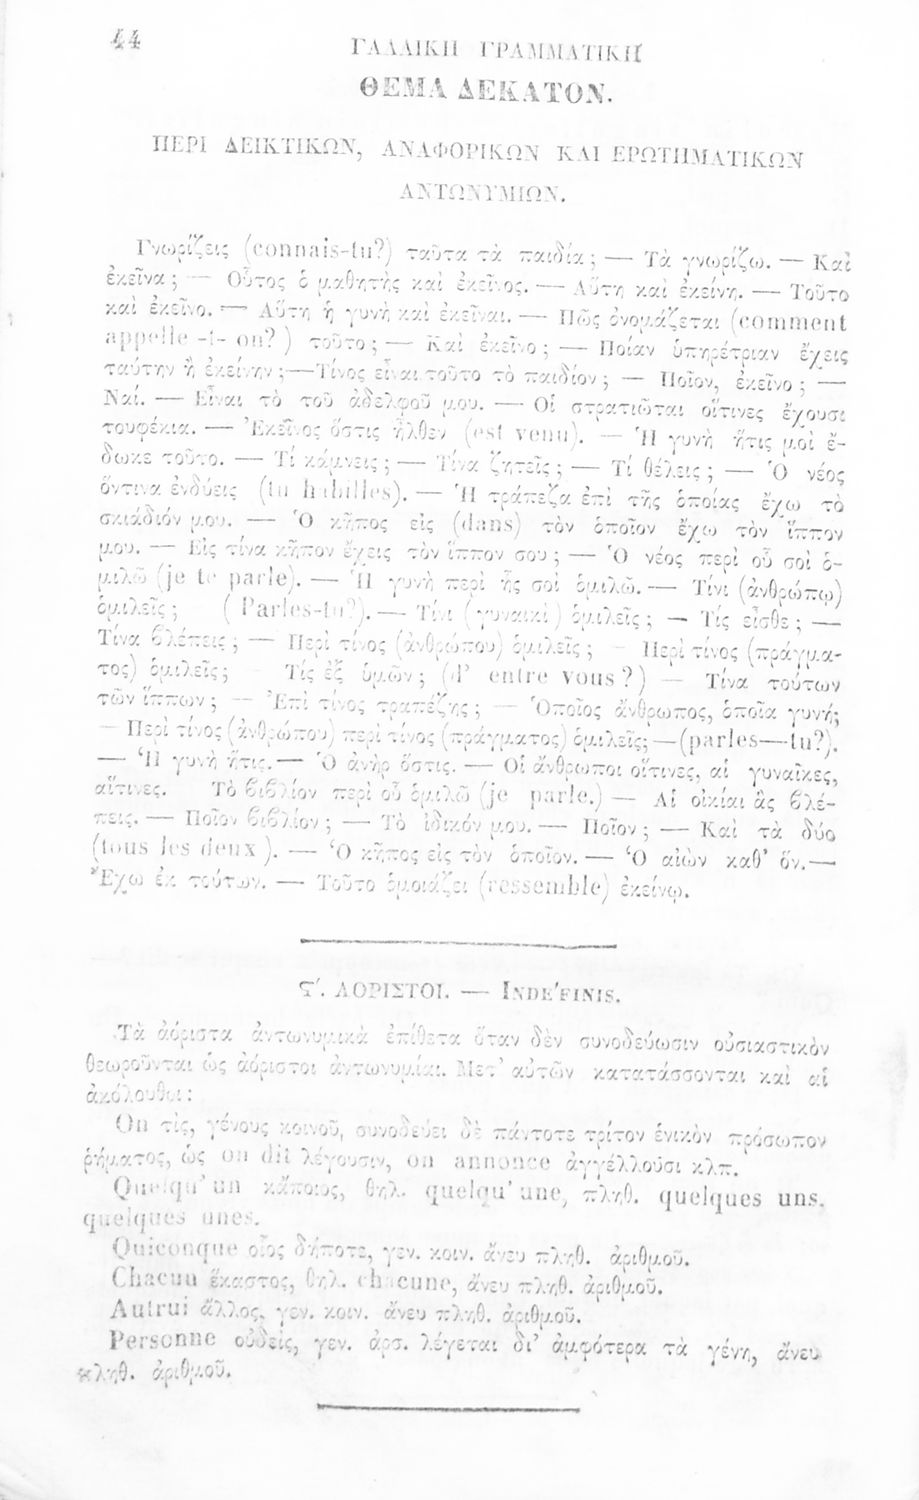 44
ΓΑΛΛΙΚΗ ΓΡΑΜΜΑΤΙΚΗ
ΘΕΜΑ ΔΕΚΑΤΟΝ.
ΠΕΡΙ ΔΕΙΚΤΙΚΩΝ, ΑΝΑΦΟΡΙΚΩΝ ΚΑΙ ΕΡΩΤΗΜΑΤΙΚΩΝ
ΑΝΤΩΝΥΜΙΩΝ.
Γνωρίζεις (connais-tu?) ταῦτα τὰ παιδία; — Τὰ γνωρίζω. — Καὶ
ἐκεῖνα; — Οὗτος ὁ μαθητὴς καὶ ἐκεῖνος. — Αὕτη καὶ ἐκείνη. — Τοῦτο
καὶ ἐκεῖνο. — Αὕτη ἡ γυνὴ καὶ ἐκεῖναι. — Πῶς ὀνομάζεται (comment
appelle -t- on?) τοῦτο; — Καὶ ἐκεῖνο; — Ποίαν ὑπηρέτριαν ἔχεις
ταύτην ἢ ἐκείνην; — Τίνος εἶναι τοῦτο τὸ παιδίον; — Ποῖον, ἐκεῖνο; —
Ναί. — Εἶναι τὸ τοῦ ἀδελφοῦ μου. — Οἱ στρατιῶται οἵτινες ἔχουσι
τουφέκια. — Ἐκεῖνος ὅστις ἦλθεν (est venu). — Ἡ γυνὴ ἥτις μοὶ ἔ-
δωκε τοῦτο. — Τί κάμνεις; — Τίνα ζητεῖς; — Τί θέλεις; — Ὁ νέος
ὅντινα ἐνδύεις (tu habilles). — Ἡ τράπεζα ἐπὶ τῆς ὁποίας ἔχω τὸ
σκιάδιόν μου. — Ὁ κῆπος εἰς (dans) τὸν ὁποῖον ἔχω τὸν ἵππον
μου. — Εἰς τίνα κῆπον ἔχεις τὸν ἵππον σου; — Ὁ νέος περὶ οὗ σοὶ ὁ-
μιλῶ (je te parle). — Ἡ γυνὴ περὶ ἧς σοὶ ὁμιλῶ. — Τίνι (ἀνθρώπῳ)
ὁμιλεῖς; (Parles-tu?). — Τίνι (γυναικὶ) ὁμιλεῖς; — Τίς εἶσθε; —
Τίνα βλέπεις; — Περὶ τίνος (ἀνθρώπου) ὁμιλεῖς; — Περὶ τίνος (πράγμα-
τος) ὁμιλεῖς; Τίς ἐξ ὑμῶν; (d' entre vous?) — Τίνα τούτων
τῶν ἵππων; — Ἐπὶ τίνος τραπέζης; — Ὁποῖος ἄνθρωπος, ὁποῖα γυνή;
— Περὶ τίνος (ἀνθρώπου) περὶ τίνος (πράγματος) ὁμιλεῖς; — (parles—tu?).
— Ἡ γυνὴ ἥτις. — Ὁ ἀνὴρ ὅστις. — Οἱ ἄνθρωποι οἵτινες, αἱ γυναῖκες,
αἵτινες. Τὸ βιβλίον περὶ οὗ ὁμιλῶ (je parle.) — Αἱ οἰκίαι ἃς βλέ-
πεις. — Ποῖον βιβλίον; — Τὸ ἰδικόν μου. — Ποῖον; — Καὶ τὰ δύο
(tous les deux). — Ὁ κῆπος εἰς τὸν ὁποῖον. — Ὁ αἰὼν καθ' ὅν. —
Ἔχω ἐκ τούτων. — Τοῦτο ὁμοιάζει (ressemble) ἐκείνῳ.
Ϛʹ. ΑΟΡΙΣΤΟΙ. — INDÉFINIS.
Τὰ ἀόριστα ἀντωνυμικὰ ἐπίθετα ὅταν δὲν συνοδεύωσιν οὐσιαστικὸν
θεωροῦνται ὡς ἀόριστοι ἀντωνυμίαι. Μετ' αὐτῶν κατατάσσονται καὶ αἱ
ἀκόλουθοι:
On τὶς, γένους κοινοῦ, συνοδεύει δὲ πάντοτε τρίτον ἑνικὸν πρόσωπον
ῥήματος, ὡς on dit λέγουσιν, on annonce ἀγγέλλουσι κλπ.
Quelqu' un κάποιος, θηλ. quelqu' une, πληθ. quelques uns.
quelques unes.
Quiconque οἷος δήποτε, γεν. κοιν. ἄνευ πληθ. ἀριθμοῦ.
Chacun ἕκαστος, θηλ. chacune, ἄνευ πληθ. ἀριθμοῦ.
Autrui ἄλλος, γεν. κοιν. ἄνευ πληθ. ἀριθμοῦ.
Personne οὐδεὶς, γεν. ἀρσ. λέγεται δι' ἀμφότερα τὰ γένη, ἄνευ
πληθ. ἀριθμοῦ.